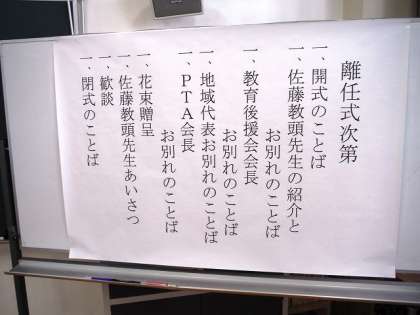 離任式次第
一、開式のことば
一、佐藤教頭先生の紹介と
お別れのことば
一、教育後援会会長
お別れのことば
一、地域代表お別れのことば
一、PTA会長
お別れのことば
一、花束贈呈
一、佐藤教頭先生あいさつ
一、歓談
一、閉式のことば